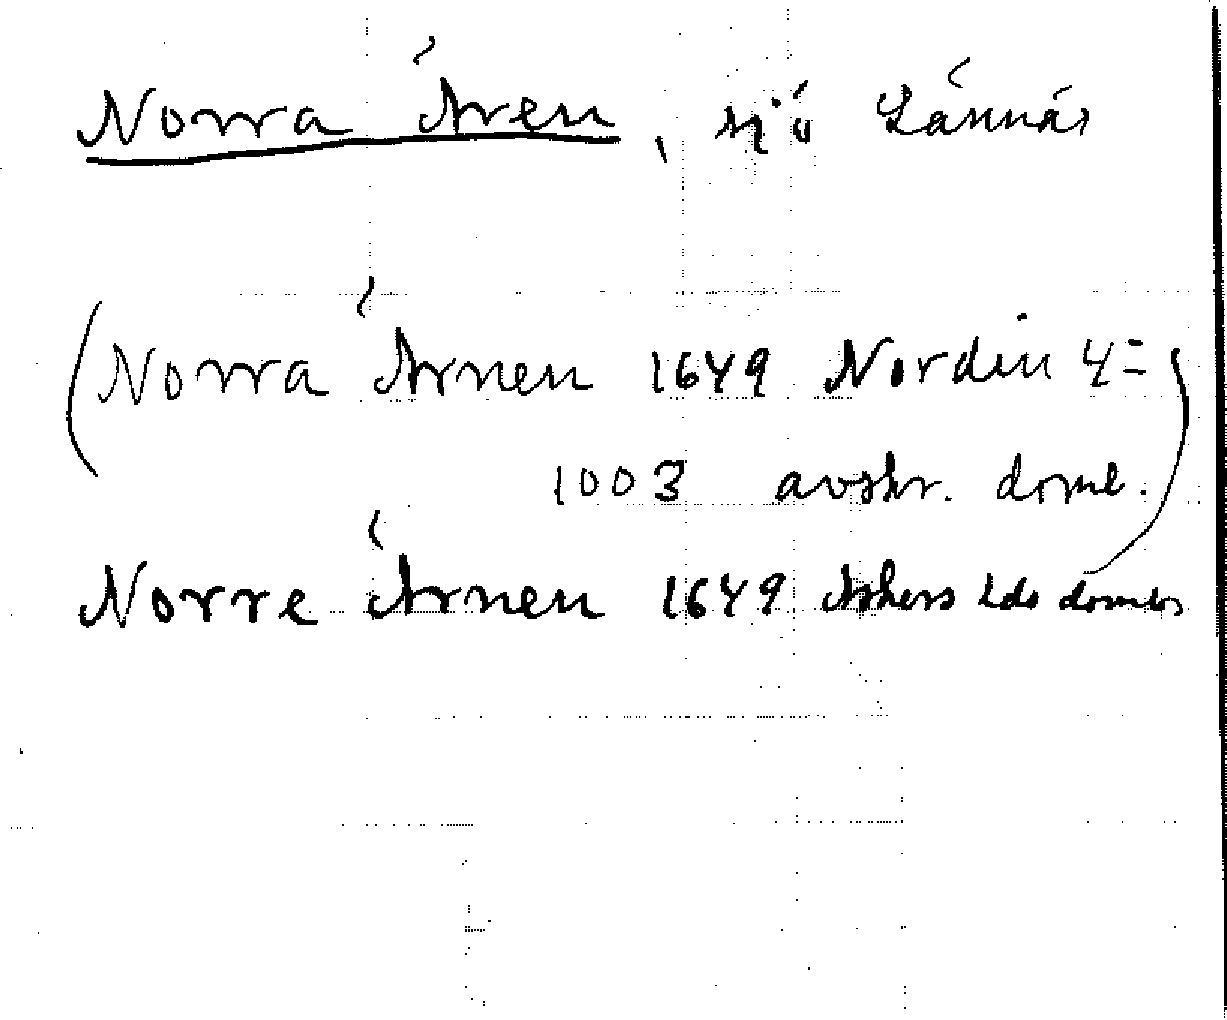 Norra Åren, sjö Lännäs
(Norra Årnen 1649 Nordin 4=
1003 avskr. domb.)
Norre Årnen 1649 Askers hds dombs